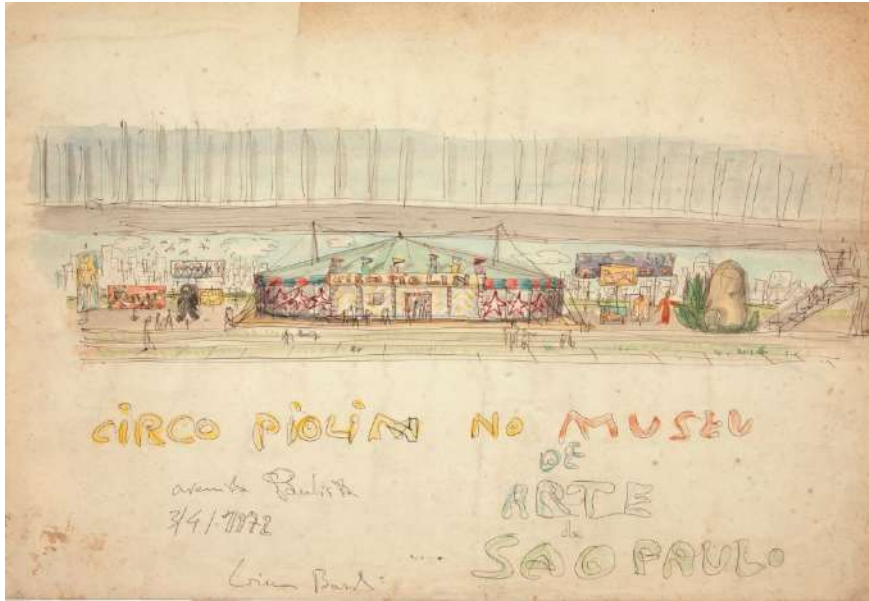 CIRCO PIOLIN NO MUSEU
DE
ARTE
de
SAO PAULO
avenida Paulista
3/4/1972
Lina Bardi